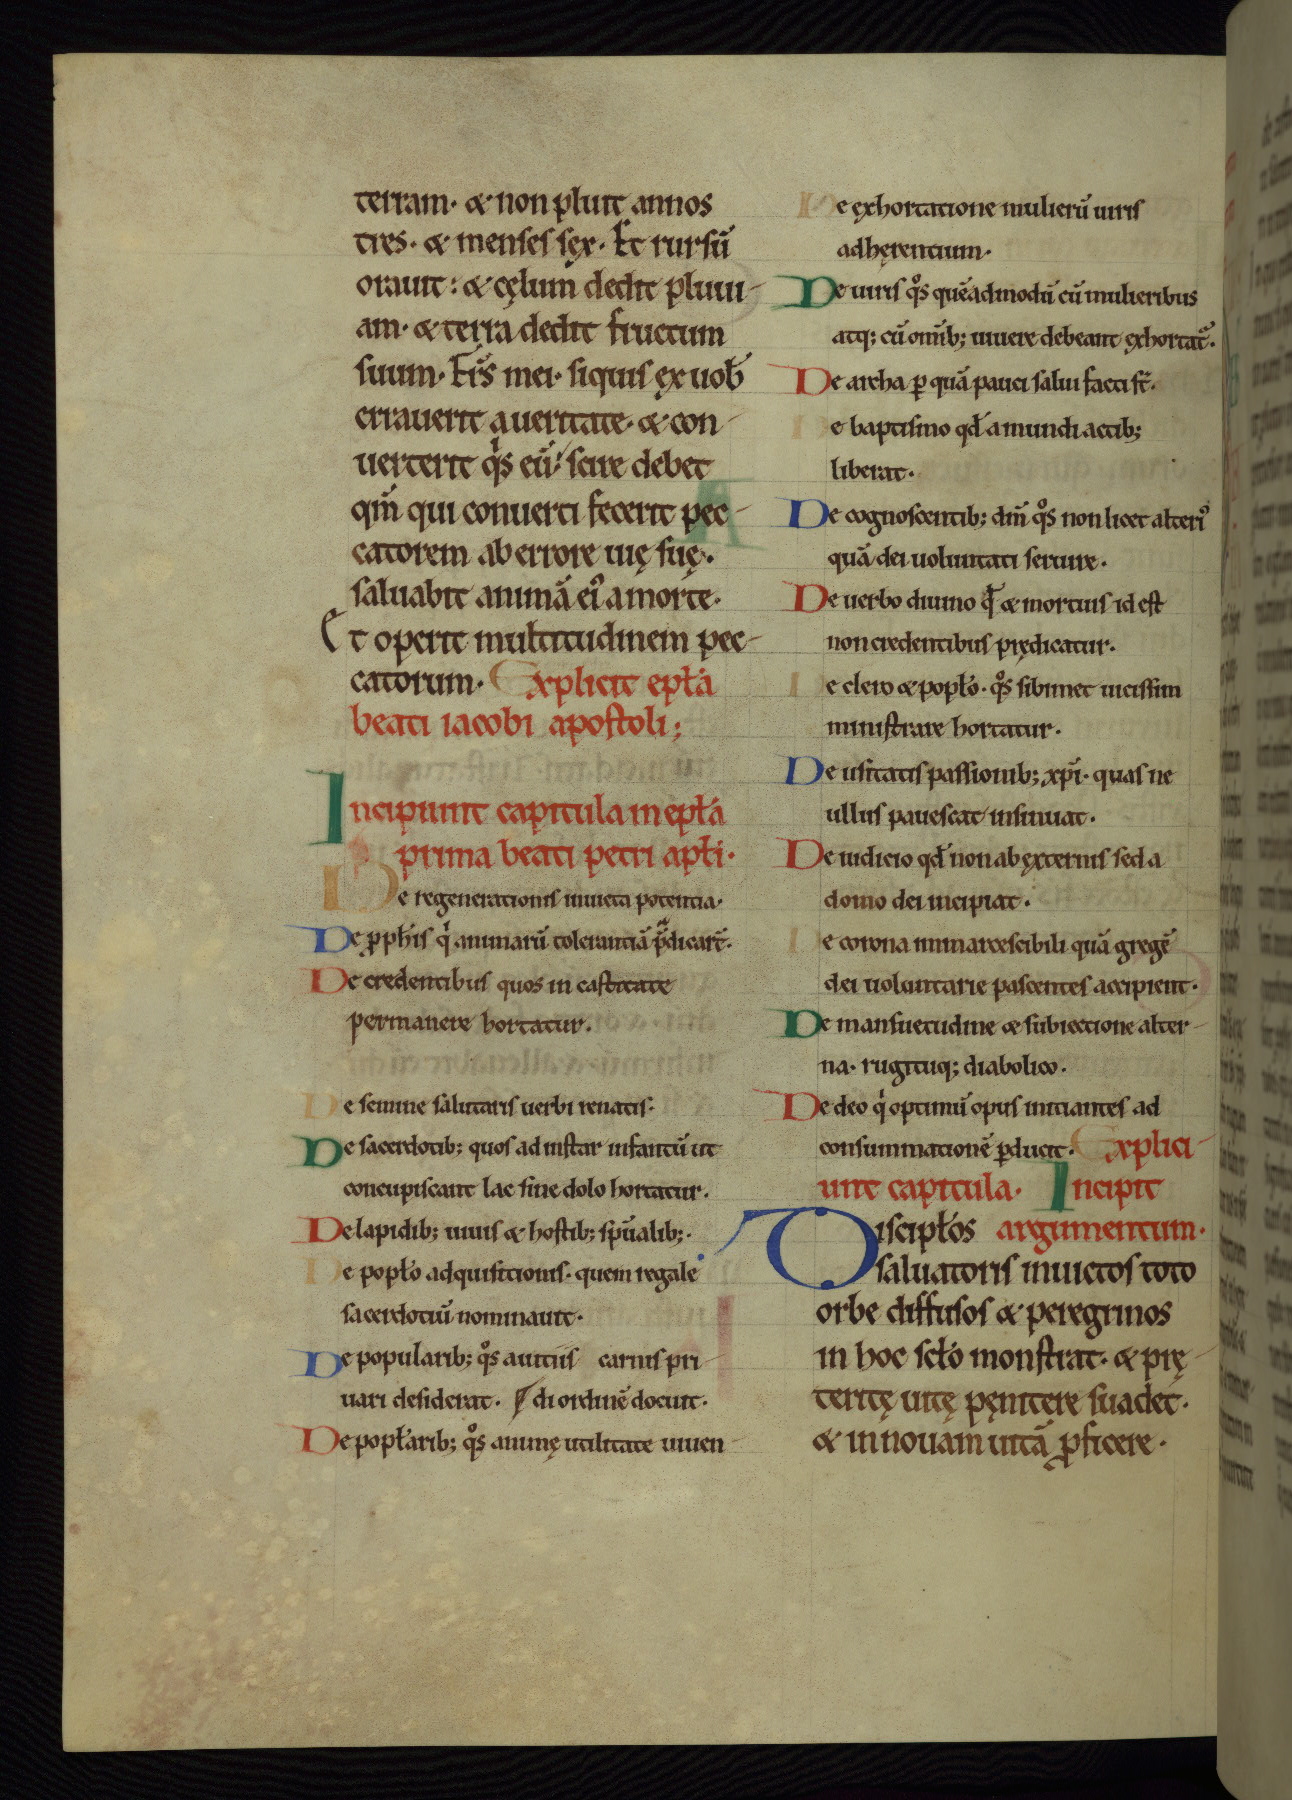 terram· & non pluit annos
tres· & menses sęx· Et rursū
orauit: & cęlum dedit pluui-
am· & terra dedit fructum
suum· Frs̄ mei· siquis ęx uob̄
errauerit a ueritate· & con-
uerterit qͥs eū· scire debet
qm̄ qui conuerti fecerit pec-
catorem ab errore uię suę·
saluabit animā eiꝰ a morte·
Et operit multitudinem pec-
catorum· Explicit epła
beati iacobi apostoli;
Incipiunt capitula in epła
prima beati petri apłi·
De regenerationis inuicta potentia·
De ꝓph̄is qͥ animarū tolerantiā p̄dicar̄t·
De credentibus quos in castitate
permanere hortatur·
De semine salutaris uerbi renatis·
De sacerdotib; quos ad instar infantū ut
concupiscant lac sine dolo hortatur·
De lapidib; uiuis & hostib; sp̄ualib;·
De popło adquisitionis· quem regale
sacerdotiū nominauit·
De popularib; qͦs a uitiis carnis pri-
uari desiderat· di ordinē docuit·
De popłarib; qͦs animę utilitate uiuen-
De ęxhortatione mulierū uiris
adhęrentium·
De uiris qͦs quēadmodū cū mulieribus
atq; cū om̄ib; uiuere debeant ęxhortat̄·
De archa ꝑ quā pauci salui facti st̄·
De baptismo qđ a mundi actib;
liberat·
De cognoscentib; dm̄ qͦs non licet alteriꝰ
quā dei uoluntati seruire·
De uerbo diuino qđ & mortuis id est
non credentibus prędicatur·
De clero & popło· qͦs sibimet uicissim
ministrare hortatur·
De usitatis passionib; xp̄i· quas ne
ullus pauescat insinuat·
De iudicio qđ non ab ęxternis sed a
domo dei incipiat·
De corona inmarcescibili quā gregē
dei uoluntarie pascentes accipient·
De mansuetudine & subiectione alter-
na· rugituq; diabolico·
De deo qͥ optimū opus initiantes ad
consummationē ꝑducit· Explici-
unt capitula· Incipit
Discipłos argumentum·
saluatoris inuictos toto
orbe diffusos & peregrinos
in hoc scło monstrat· & prę-
teritę uitę pęnitere suadet·
& in nouam uitā ꝓficere·